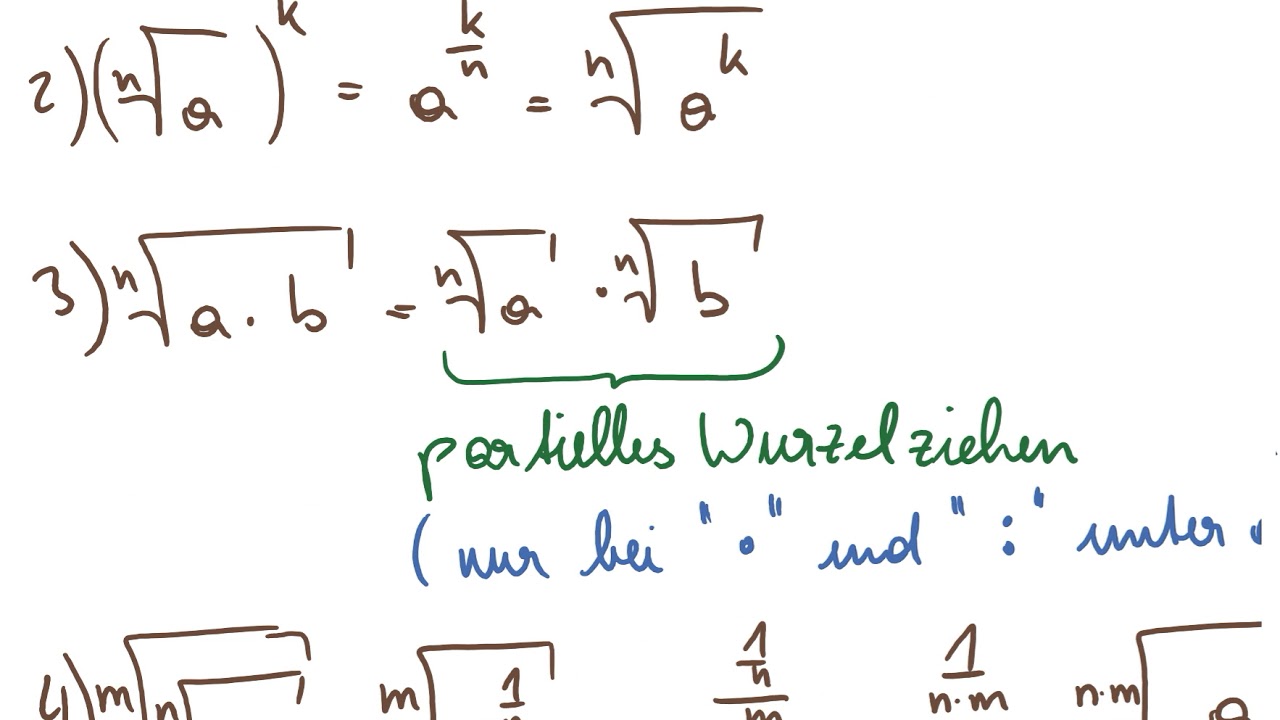 2) (ⁿ√a)^k = a^(k/n) = ⁿ√(a^k)
3) ⁿ√(a · b) = ⁿ√a · ⁿ√b
partielles Wurzelziehen
(nur bei "·" und ":" unter
4) m√ n√ m√ 1/n (1/n)/m 1/(n·m) n·m√a